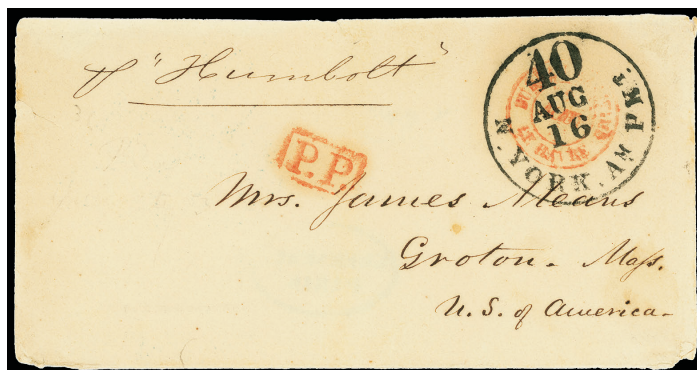 p "Humbolt"
40
AUG
16
N. YORK. AM PKT.
LE HAVRE
P.P.
Mrs. James Means
Groton. Mass.
U.S. of America.